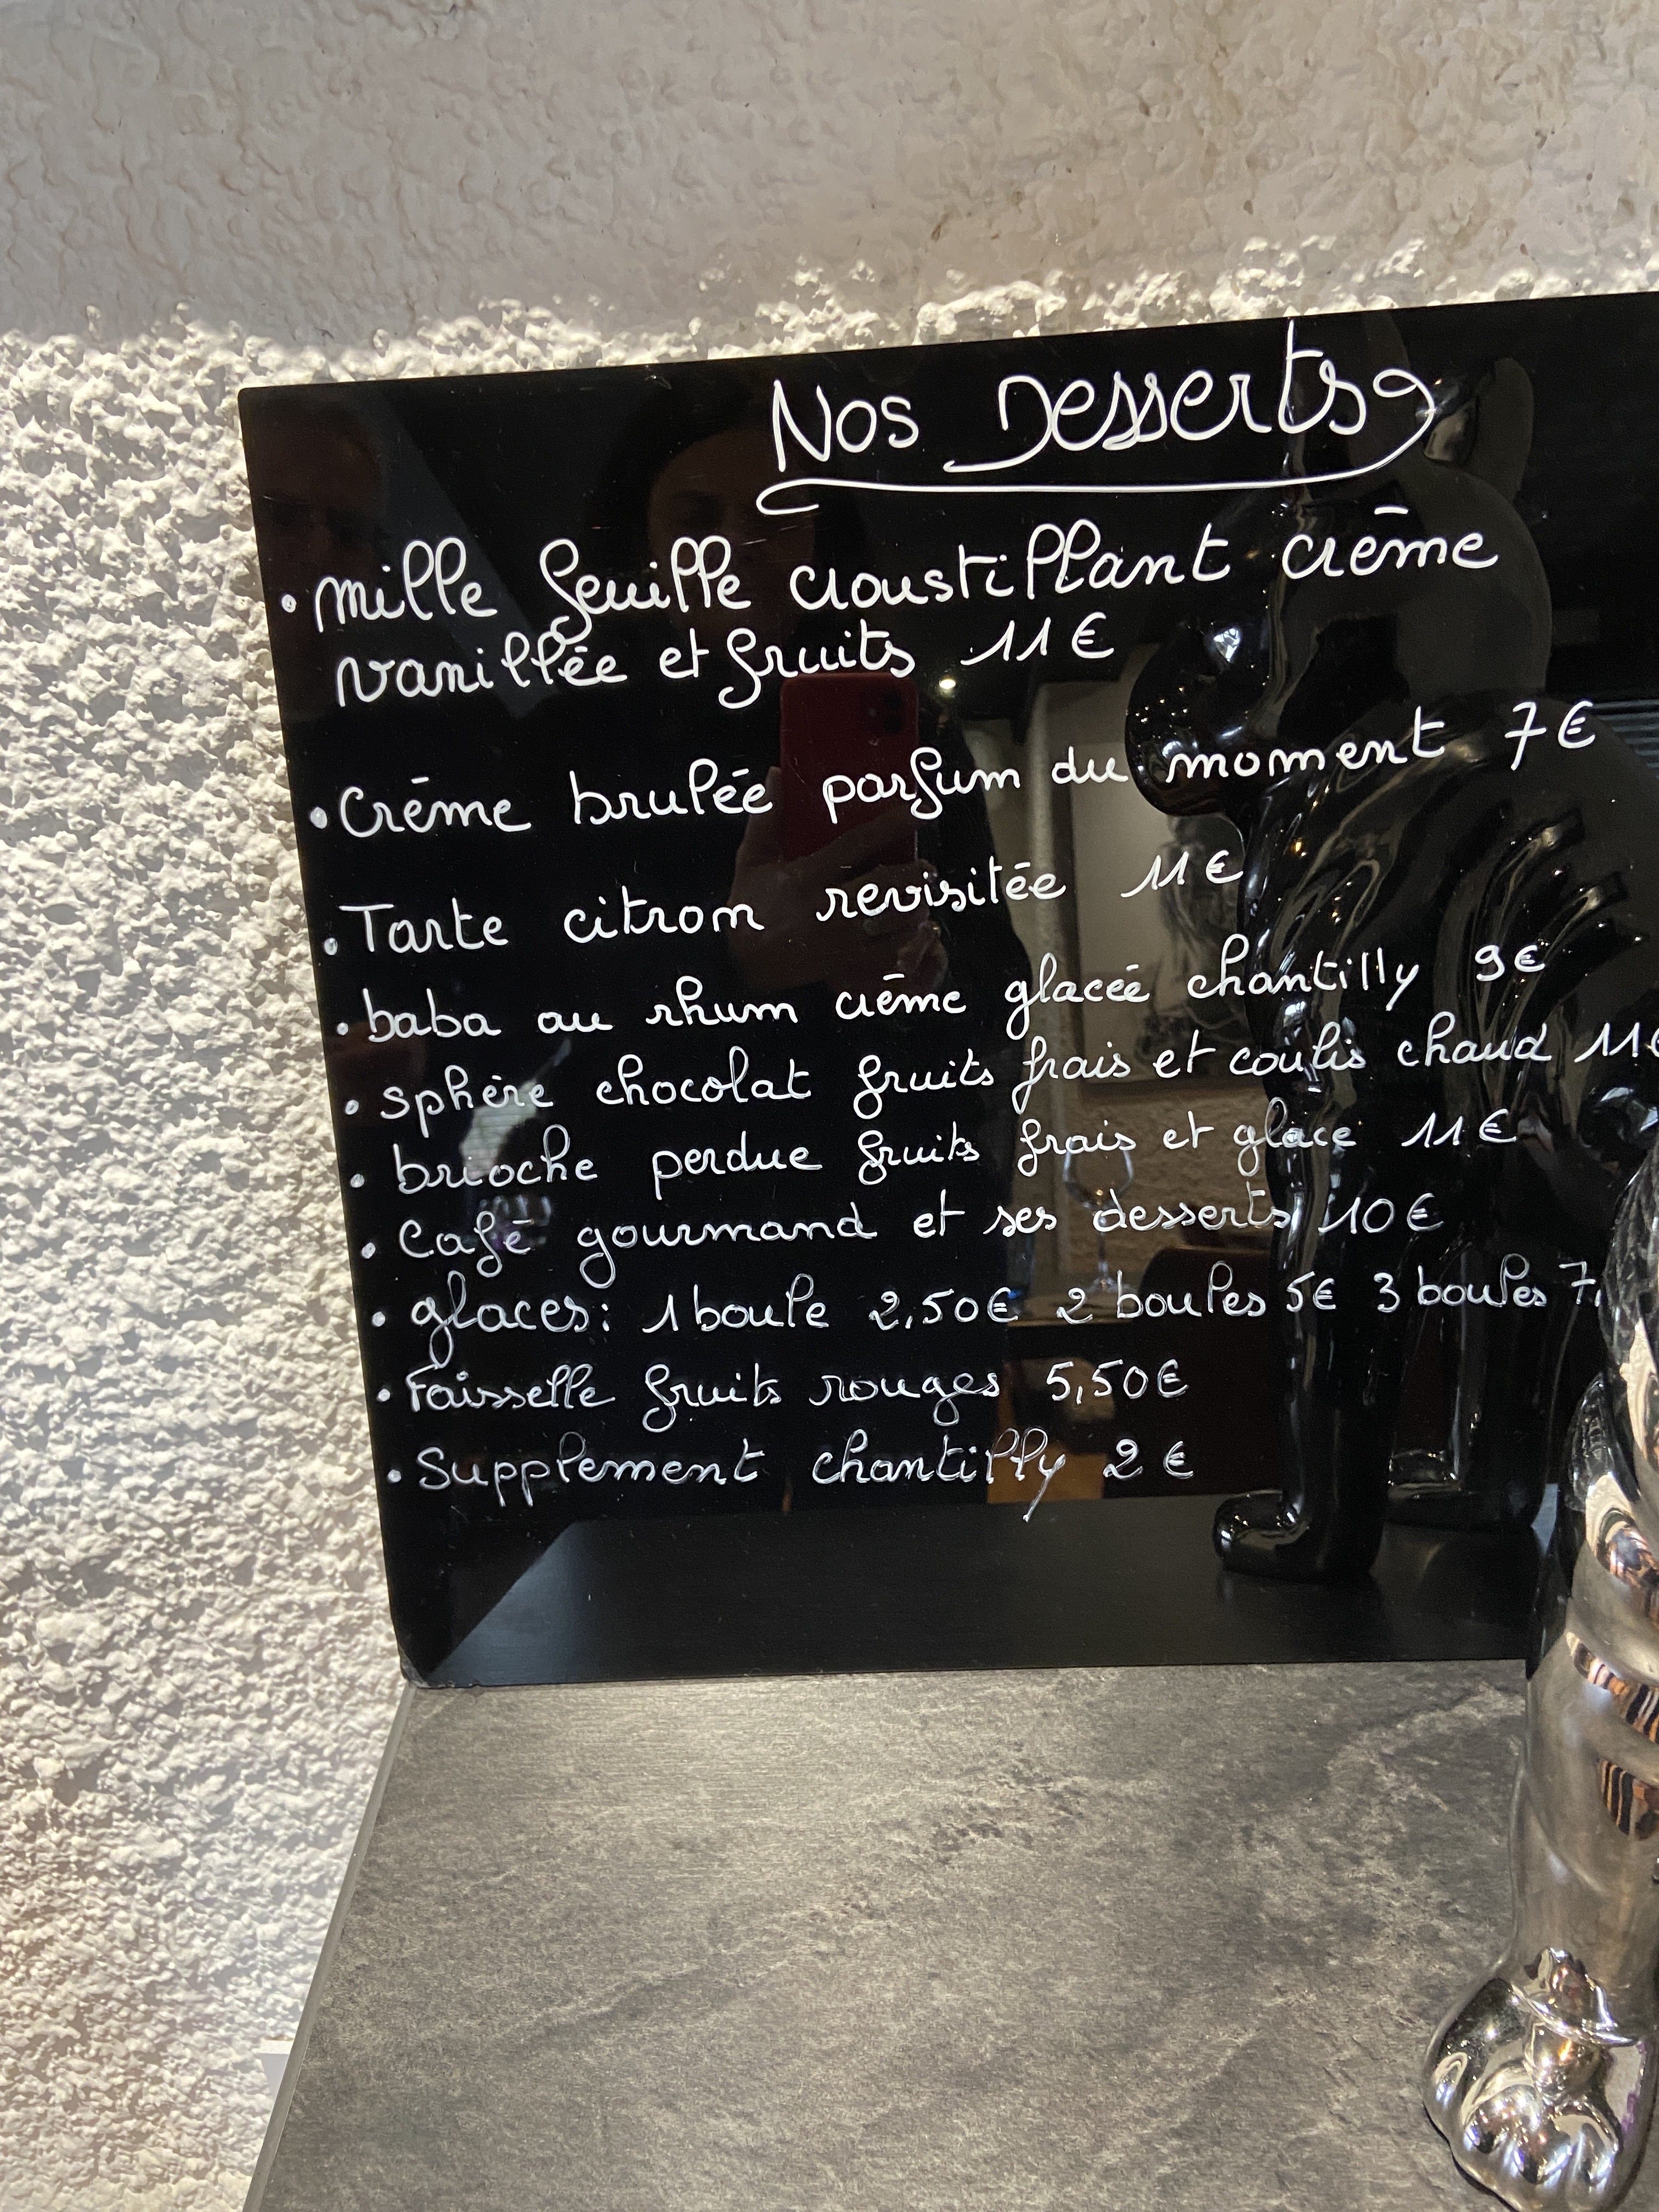 Nos Desserts
• mille feuille croustillant crème
vanillée et fruits 11€
• Crème brulée parfum du moment 7€
• Tarte citron revisitée 11€
• baba au rhum crème glacée chantilly 9€
• sphère chocolat fruits frais et coulis chaud 11€
• brioche perdue fruits frais et glace 11€
• Café gourmand et ses desserts 10€
• glaces: 1 boule 2,50€ 2 boules 5€ 3 boules 7,
• Faisselle fruits rouges 5,50€
• Supplement chantilly 2€